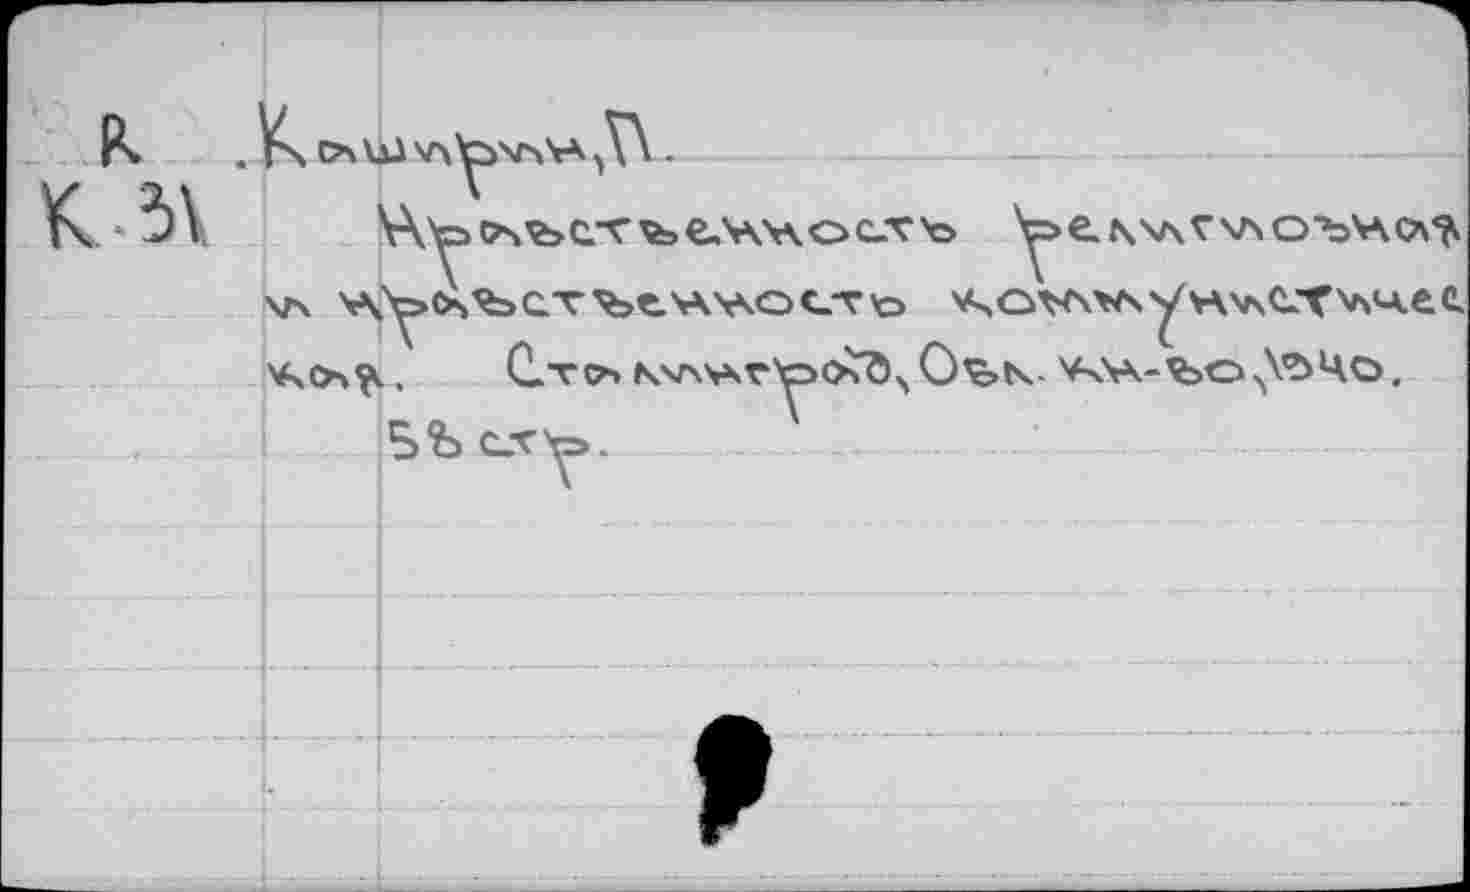 R. Каширин, П.
К.31 Нравственность религиозная
и нравственность коммунистичес
кая. Сталинград, Обл. кн-во, 1940.
53 стр.